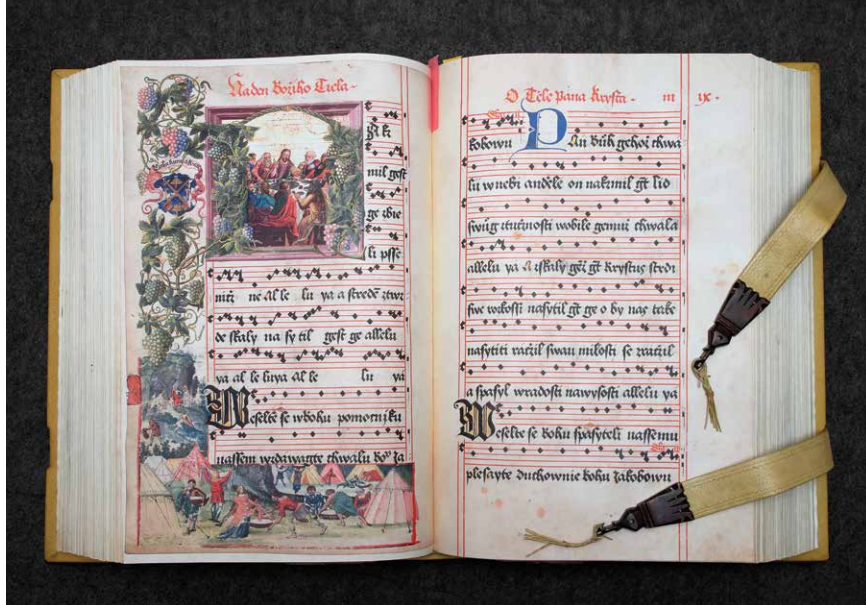 Na den Božiho Tiela
mil gest
ge tbie
li psse
nicz ne al le lu ya a stredē ztwr
de skaly na sy til gest ge allelu
ya al le luya al le lu ya
Weselte se wbohu pomocniku
nassem wzdawayte chwalu Bohu Ja
O Tiele Pana Krysta m ix
kobowu PAn Buoh gehož chwa
lu w nebi andiele on nakrmil gt lid
swuog
allelu ya A zskaly gēž gt Krystus strdi
nasytil gt ge o by nas take
nasytiti raczil swau milosti se zraczil
a spasyl wradosti nawysosti allelu ya
Weselte se Bohu spasyteli nassemu
plesayte duchownie bohu Jakobowu